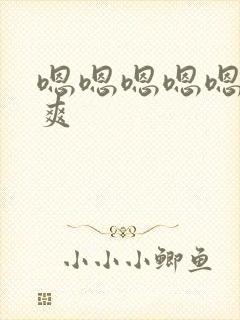 嗯嗯嗯嗯嗯
爽
小小小鲫鱼